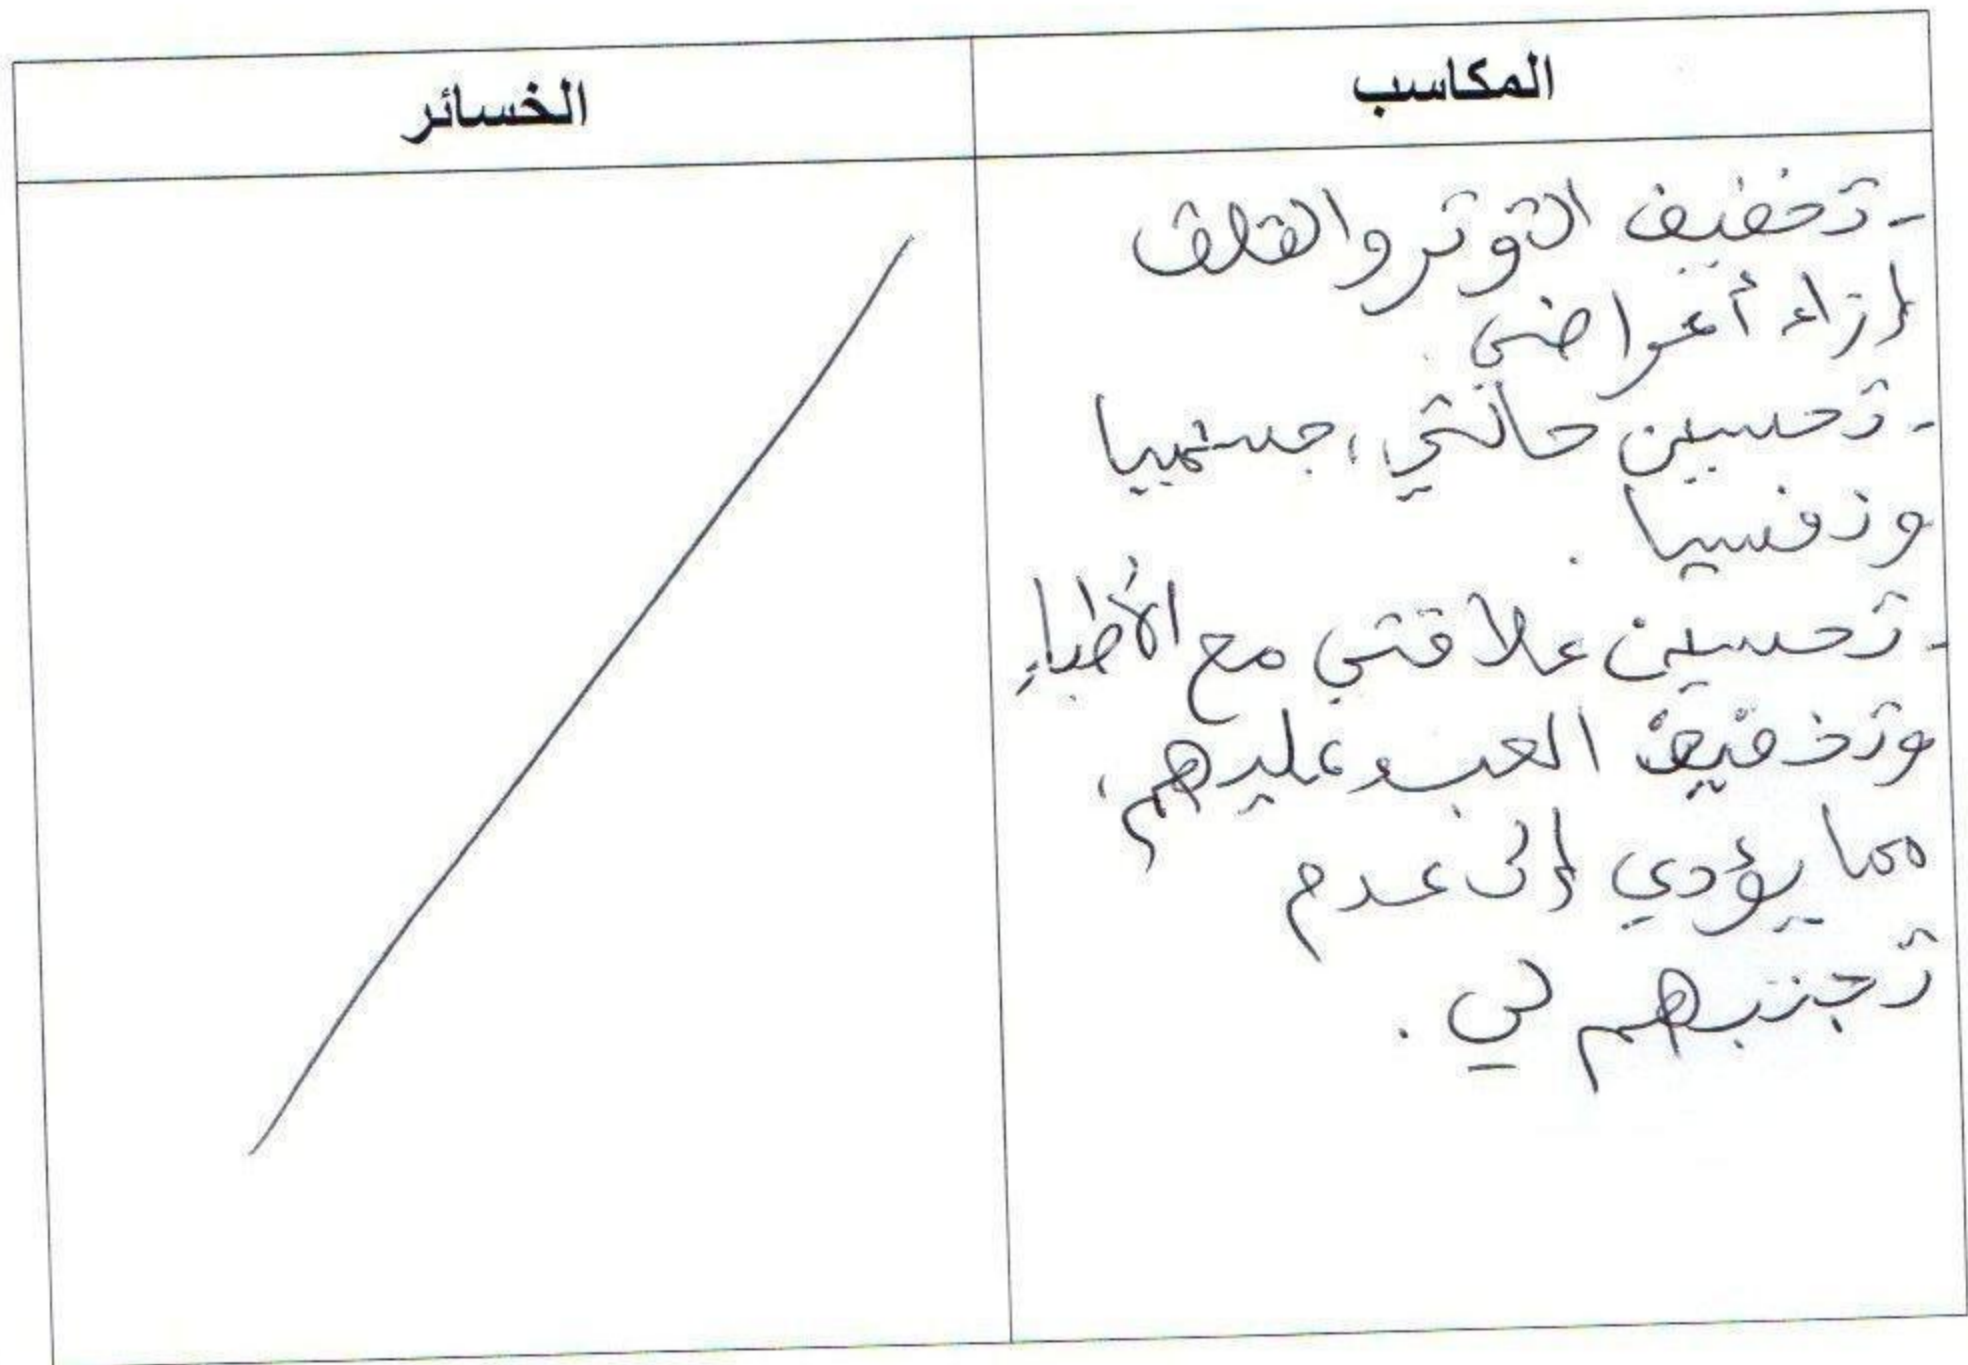 المكاسب
الخسائر
- تخفيف التوتر والقلق
إزاء أعراضي.
- تحسين حالتي، جسميا
ونفسيا.
- تحسين علاقتي مع الأطباء
وتخفيف العبء عليهم،
مما يؤدي إلى عدم
تجنبهم لي.